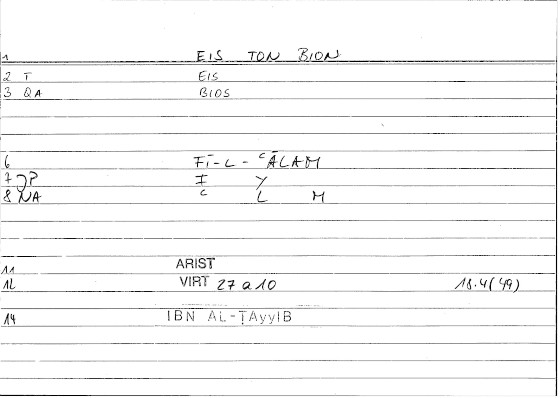 1 EIS TON BION
2 T EIS
3 QA BIOS
6 FĪ-L-ʿĀLAM
7 JP I Y
8 NA ʿ L M
11 ARIST
12 VIRT 27 a 10 18.4(49)
14 IBN AL-ṬAyyIB